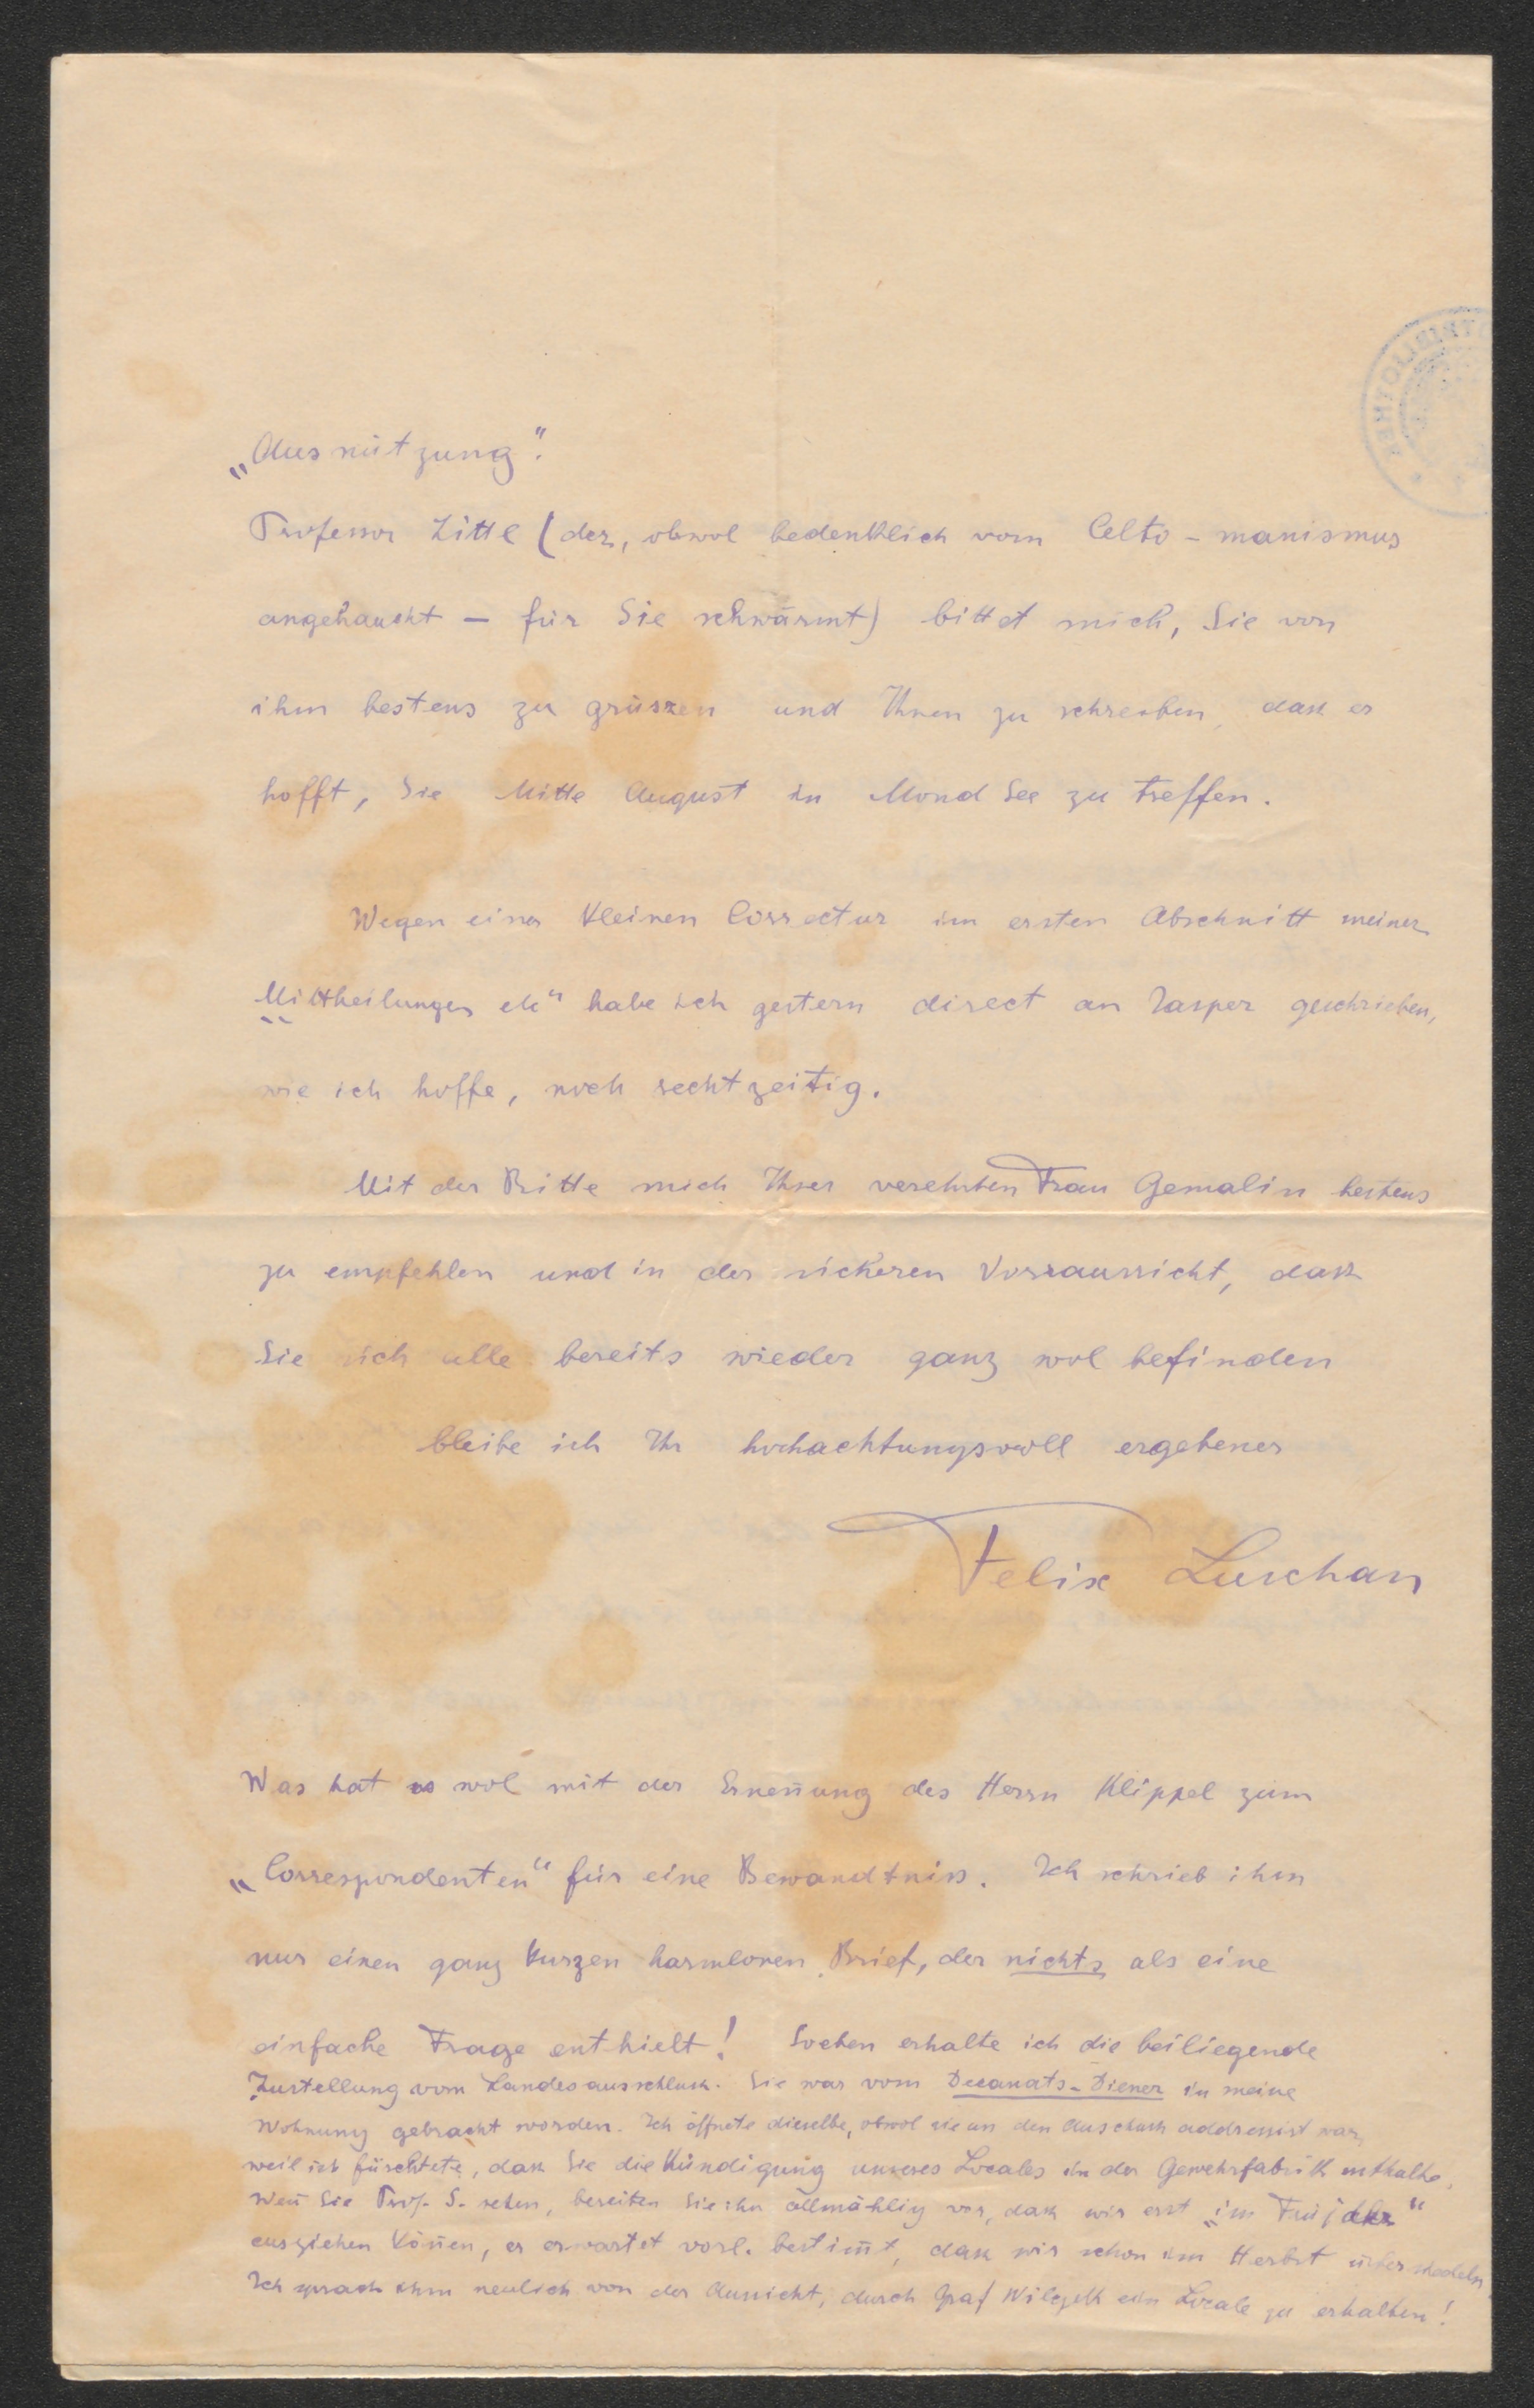 „Ausnützung“.
Professor Zittl (der, obwol bedenklich vom Celto-manismus
angehaucht – für Sie schwärmt) bittet mich, Sie von
ihm bestens zu grüszen und Ihnen zu schreiben, dasz er
hofft, Sie Mitte August in Mond See zu treffen.
Wegen einer kleinen Correctur im ersten Abschnitt meiner
„Mittheilungen etc“ habe ich gestern direct an Jasper geschrieben,
wie ich hoffe, noch rechtzeitig.
Mit der Bitte mich Ihrer verehrten Frau Gemalin bestens
zu empfehlen und in der sicheren Vorraussicht, dasz
Sie sich alle bereits wieder ganz wol befinden
bleibe ich Ihr hochachtungsvoll ergebener
Felix Luschan
Was hat es wol mit der Erneñung des Herrn Klippel zum
„Correspondenten“ für eine Bewandtniss. Ich schrieb ihm
nur einen ganz kurzen harmlosen Brief, der nichts als eine
einfache Frage enthielt! Soeben erhalte ich die beiliegende
Zustellung vom Landesausschusz. Sie war vom Decanats-Diener in meine
Wohnung gebracht worden. Ich öffnete dieselbe, obwol sie an den Ausschusz addressirt war,
weil ich fürchtete, dasz Sie die Kündigung unseres Locales in der Gewehrfabrik enthalte.
Weñ Sie Prof. S. sehen, bereiten Sie ihn allmählig vor, dasz wir erst „im Früjahr“
ausziehen köñen, er erwartet vorl. bestim̄t, dasz wir schon im Herbst übersiedeln.
Ich sprach ihm neulich von der Aussicht, durch Graf Wilczek ein Locale zu erhalten!